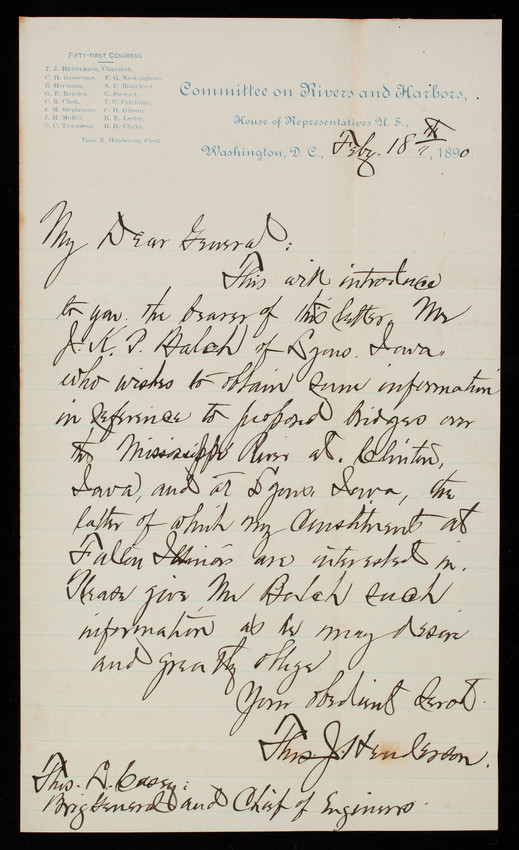 FIFTY-FIRST CONGRESS.
T. J. HENDERSON, Chairman.
C. H. Grosvenor.
B. Hermann.
G. E. Bowden.
C. B. Clark.
S. M. Stephenson.
J. H. Moffitt.
C. C. Townsend.
F. G. Niedringhaus.
N. C. Blanchard.
C. Stewart.
T. C. Catchings.
C. H. Gibson.
R. E. Lester.
R. H. Clarke.
Thos. B. Henderson, Clerk
Committee on Rivers and Harbors,
House of Representatives U. S.,
Washington, D. C., Feby. 18th, 1890
My Dear General:
This will introduce
to you the bearer of this letter, Mr
J. K. P. Balch of Lyons. Iowa.
who wishes to obtain sum information
in reference to proposed bridges over
the Mississippi River at. Clinton,
Iowa, and at Lyons. Iowa, the
latter of which my Constituents at
Fulton Illinois are interested in.
Please give Mr Balch such
information as he may desire
and greatly oblige
Your obedient Servt.
Thos. J. Henderson.
Thos. L. Casey:
Brig General and Chief of Engineers.